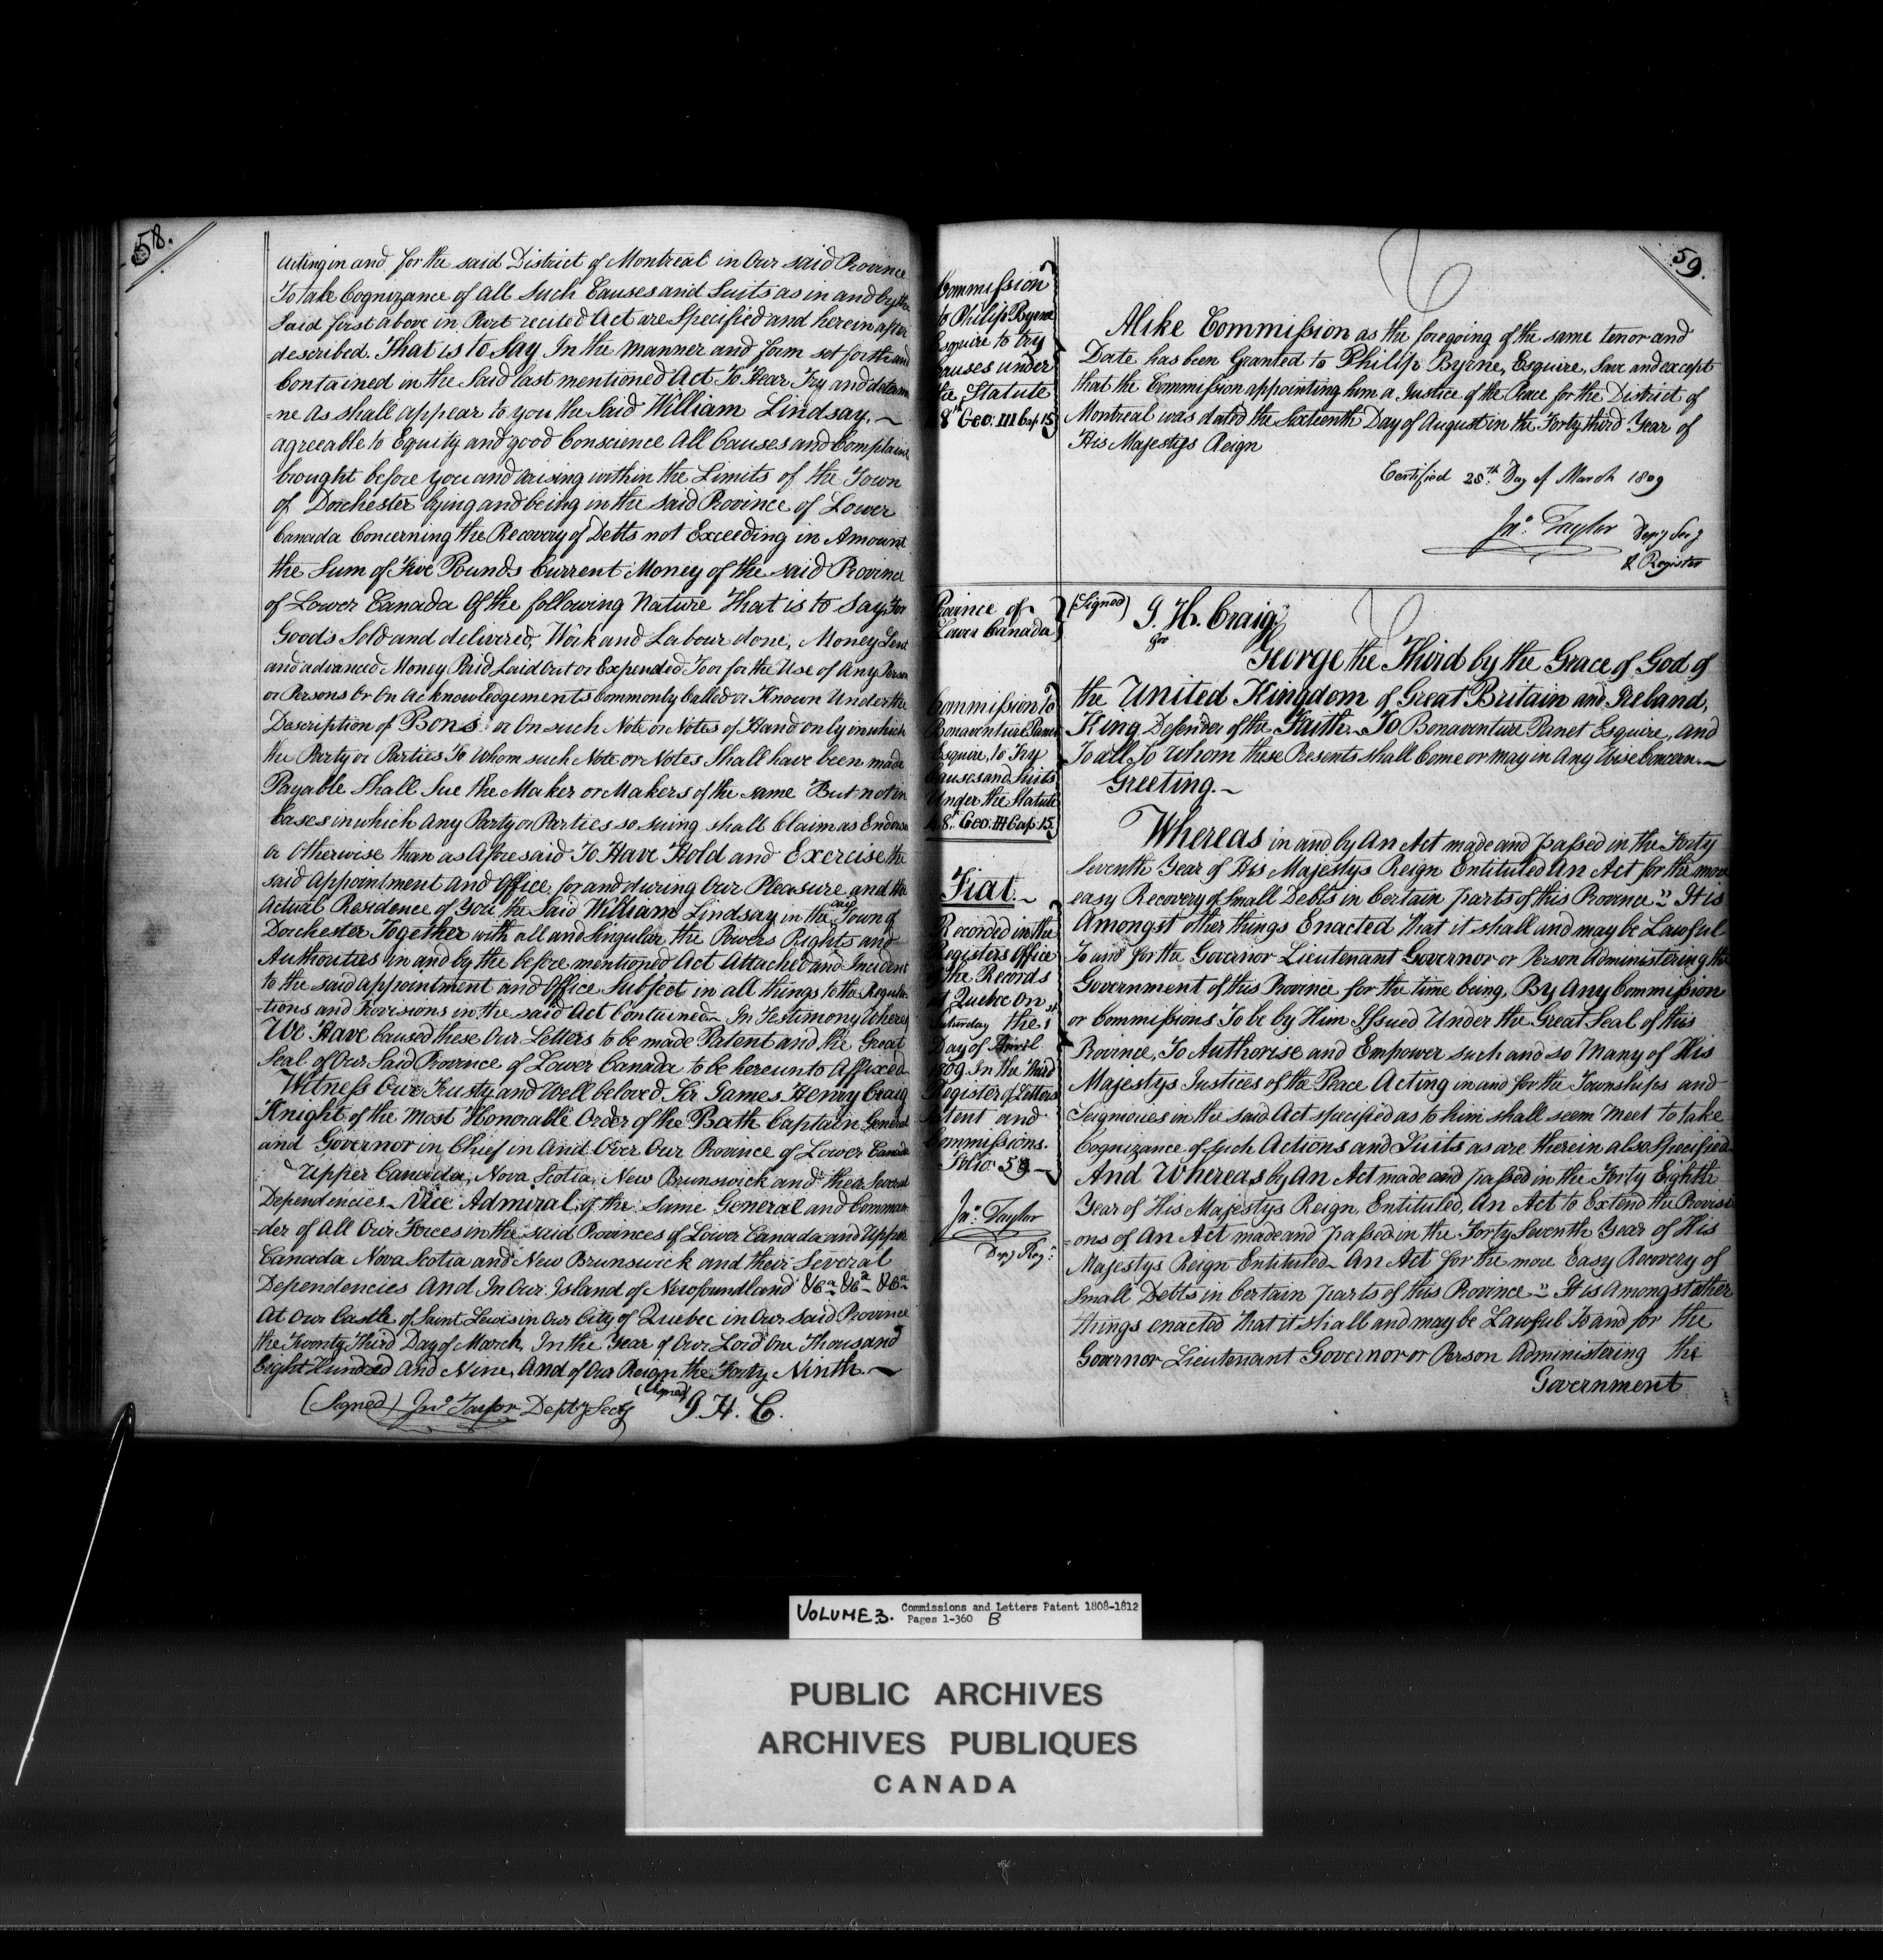 58.
acting in and for the said District of Montreal in Our said Province
To take Cognizance of All Such Causes and Suits as in and by the
Said first above in Part recited Act are Specified and herein after
described. That is to Say In the Manner and form set forth and
Contained in the Said last mentioned Act To Hear Try and determi
=ne As shall appear to you the Said William Lindsay,
agreeable to Equity and good Conscience All Causes and Complaints
brought before you and arising within the Limits of the Town
of Dorchester lying and being in the said Province of Lower
Canada Concerning the Recovery of Debts not Exceeding in Amount
the Sum of Five Pounds Current Money of the said Province
of Lower Canada Of the following Nature That is to Say, For
Goods Sold and delivered, Work and Labour done, Money Lent
and advanced Money Paid Laid Out or Expended To or for the Use of Any Person
or Persons Or On Acknowledgements Commonly Called or Known Under the
Description of Bons or On such Note or Notes of Hand only in which
the Party or Parties To Whom such Note or Notes Shall have been made
Payable Shall Sue the Maker or Makers of the same But not in
Cases in which Any Party or Parties so suing shall Claim as Endorsee
or Otherwise than as Aforesaid To Have Hold and Exercise the
said Appointment and Office for and during Our Pleasure and the
Actual Residence of You the Said William Lindsay in the said Town of
Dorchester Together with all and Singular the Powers Rights and
Authorities in and by the before mentioned Act Attached and Incident
to the said appointment and Office Subject in all things to the Regula-
-tions and Provisions in the said Act Contained In Testimony Whereof
We Have Caused these Our Letters to be made Patent and the Great
Seal of Our Said Province of Lower Canada to be hereunto Affixed
Witness Our Trusty and Well beloved Sir James Henry Craig
Knight of the Most Honorable Order of the Bath Captain General
and Governor in Chief in And Over Our Province of Lower Canada
Upper Canada, Nova Scotia, New Brunswick and their Several
Dependencies Vice Admiral of the Same General and Comman-
-der of All Our Forces in the said Provinces of Lower Canada and Upper
Canada Nova Scotia and New Brunswick and their Several
Dependencies And In Our Island of Newfoundland &ca &ca &ca
At Our Castle of Saint Lewis in Our City of Quebec in Our Said Province
the Twenty Third Day of March In the Year of Our Lord One Thousand
Eight Hundred And Nine, And of Our Reign the Forty Ninth.
(Signed) Jno Taylor Depty Secy (Signed) J. H. C.
59.
Commission
to Philip Byrne
Esquire to try
Causes under
the Statute
48th Geo. III Cap. 15
Alike Commission as the foregoing of the same tenor and
Date has been Granted to Philip Byrne, Esquire, Save and except
that the Commission appointing him a Justice of the Peace for the District of
Montreal was dated the Sixteenth Day of August in the Forty third Year of
His Majestys Reign
Certified 25th Day of March 1809
Jno. Taylor Depy Secy
& Register
Province of
Lower Canada
(Signed) J. H. Craig,
Gov
Commission to
Bonaventure Panet
Esquire, to Try
Causes and Suits
Under the Statute
48th Geo. III Cap. 15
George the Third by the Grace of God of
the United Kingdom of Great Britain and Ireland,
King Defender of the Faith To Bonaventure Panet Esquire, and
To all To Whom these Presents shall Come or may in Any Wise Concern
Greeting.
Fiat.
Recorded in the
Registers Office
of the Records
at Quebec On
Saturday the 1st
Day of April
1809 In the Third
Register of Letters
Patent and
Commissions.
Folio 59
Jno. Taylor
Depy Regr.
Whereas in and by An Act made and passed in the Forty
Seventh Year of His Majestys Reign Entituled An Act for the more
easy Recovery of Small Debts in Certain parts of this Province" It is
Amongst other things Enacted That it shall and may be Lawful
To and for the Governor Lieutenant Governor or Person Administering the
Government of this Province for the time being, By Any Commission
or Commissions To be by Him Issued Under the Great Seal of this
Province, To Authorise and Empower such and so Many of His
Majestys Justices of the Peace Acting in and for the Townships and
Seigniories in the said Act specified as to him shall seem Meet to take
Cognizance of Such Actions and Suits as are therein also Specified
And Whereas by An Act made and passed in the Forty Eighth
Year of His Majestys Reign Entituled, An Act to Extend the Provisi
=ons of An Act made and passed in the Forty Seventh Year of His
Majestys Reign Entituled An Act for the more Easy Recovery of
Small Debts in Certain parts of this Province" It is Amongst other
things enacted That it shall and may be Lawful To and for the
Governor Lieutenant Governor or Person Administering the
Government
VOLUME 3. Commissions and Letters Patent 1808-1812
Pages 1-360 B
PUBLIC ARCHIVES
ARCHIVES PUBLIQUES
CANADA